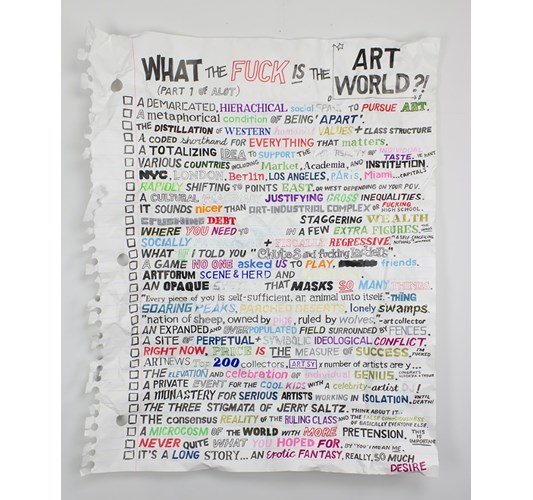 WHAT THE FUCK IS THE ART WORLD?!
(PART 1 OF ALOT)
A DEMARCATED, HIERACHICAL social SPACE TO PURSUE ART.
A metaphorical condition OF BEING 'APART'.
THE DISTILLATION OF WESTERN VALUES + CLASS STRUCTURE
A CODED shorthand FOR EVERYTHING THAT matters.
A TOTALIZING IDEA TO SUPPORT THE OF INDIVIDUAL TASTE.
VARIOUS COUNTRIES INCLUDING Market, Academia, AND INSTITUTION.
NYC, LONDON, Berlin, LOS ANGELES, PARIS, Miami...CAPITALS
RAPIDLY SHIFTING TO POINTS EAST, OR WEST DEPENDING ON YOUR POV.
A CULTURAL JUSTIFYING GROSS INEQUALITIES.
IT SOUNDS nicer THAN ART-INDUSTRIAL COMPLEX OR FUCKING HIGH SCHOOL.
CRUSHING DEBT STAGGERING WEALTH
WHERE YOU NEED TO IN A FEW EXTRA FIGURES.
SOCIALLY + FISCALLY REGRESSIVE.
WHAT IF I TOLD YOU "
A GAME NO ONE asked US TO PLAY. friends.
ARTFORUM SCENE & HERD AND
AN OPAQUE THAT MASKS SO MANY THINGS.
"Every piece of you is self-sufficient, an animal unto itself." THING
SOARING PEAKS, PARCHED DESERTS, lonely swamps.
"nation of sheep, owned by pigs, ruled by wolves."-art collector
AN EXPANDED AND OVERPOPULATED FIELD SURROUNDED BY FENCES.
A SITE OF PERPETUAL + SYMBOLIC IDEOLOGICAL CONFLICT.
RIGHT NOW, PRICE IS THE MEASURE OF SUCCESS. FUCKED
ARTNEWS TOP 200 collectors, ARTSY x number of artists are y...
THE ELEVATION AND celebration OF individual GENIUS.
A PRIVATE EVENT FOR THE COOL KIDS WITH A celebrity-artist DJ!
A MONASTERY FOR SERIOUS ARTISTS WORKING IN ISOLATION, UNTIL DEATH.
THE THREE STIGMATA OF JERRY SALTZ. THINK ABOUT IT.
THE consensus REALITY OF THE RULING CLASS AND THE FALSE CONSCIOUSNESS OF BASICALLY EVERYONE ELSE.
A MICROCOSM OF THE WORLD WITH MORE PRETENSION. THIS IS IMPORTANT
NEVER QUITE WHAT YOU HOPED FOR. BY "YOU" I MEAN ME.
IT'S A LONG STORY... AN Erotic FANTASY, REALLY, SO MUCH DESIRE